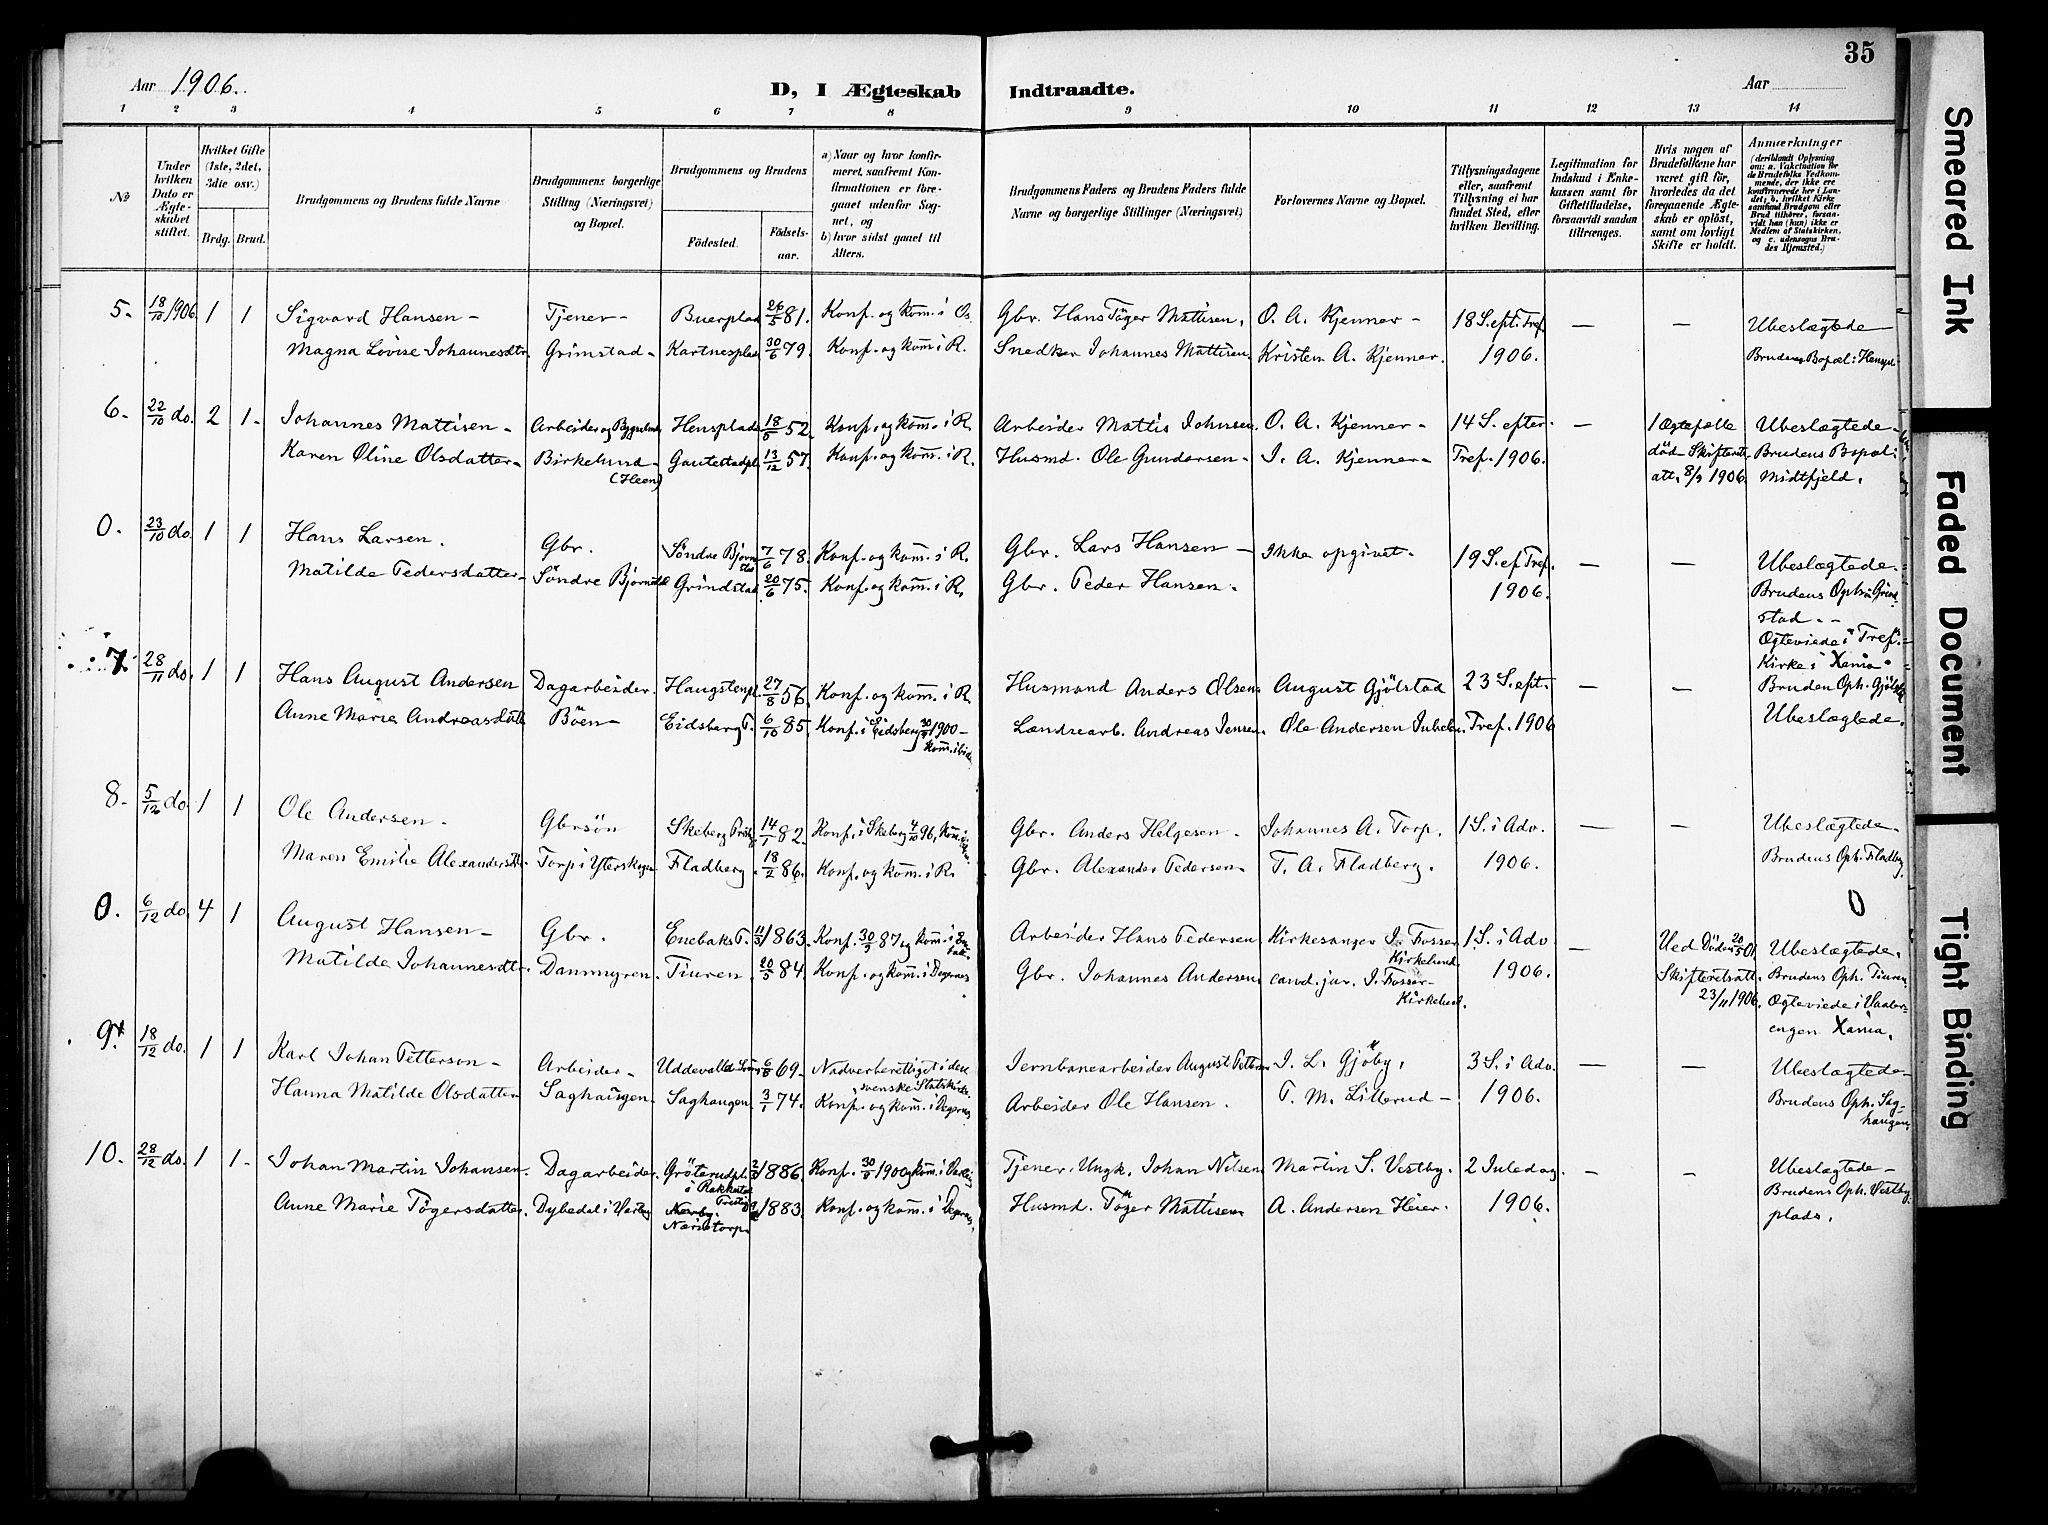 35
Aar 1906.
D, I Ægteskab Indtraadte.
Aar
1 2 3 4 5 6 7 8 9 10 11 12 13 14
No
Under hvilken Dato er Ægteskabet stiftet.
Hvilket Gifte (1ste, 2det, 3die osv.)
Brdg. Brud.
Brudgommens og Brudens fulde Navne
Brudgommens borgerlige Stilling (Næringsvei) og Bopæl.
Brudgommens og Brudens
Fødested.
Fødselsaar.
a) Naar og hvor konfirmeret, saafremt Konfirmationen er foregaaet udenfor Sognet, og
b) hvor sidst gaaet til Alters.
Brudgommens Faders og Brudens Faders fulde Navne og borgerlige Stillinger (Næringsvei)
Forlovernes Navne og Bopæl.
Tillysningsdagene eller, saafremt Tillysning ei har fundet Sted, efter hvilken Bevilling.
Legitimation for Indskud i Enkekassen samt for Giftetilladelse, forsaavidt saadan tiltrænges.
Hvis nogen af Brudefolkene har været gift før, hvorledes da det foregaaende Ægteskab er opløst, samt om lovligt Skifte er holdt.
Anmærkninger
(deriblandt Oplysning om: a. Vakcination for de Brudefolks Vedkommende, der ikke ere konfirmerede her i Landet; b. hvilket Kirkesamfund Brudgom eller Brud tilhører, forsaavidt han (hun) ikke er Medlem af Statskirken, og c. udensogns Brudes Hjemsted.)
5. 18/10 1906 1 1 Sigvard Hansen - Tjener - Buerplad 26/5 81. Konf. og kom. i Os. Gbr. Hans Töger Mattisen. O. A. Kjenner - 18 S. eft. Tref. — — Ubeslægtede
Magna Lovise Johannesdtr. Grimstad - Kartnesplad 30/6 79. Konf. og kom. i R. Snedker Johannes Mattisen. Kristen A. Kjenner. 1906. Brudens Bopæl: Henspl.
6. 22/10 do. 2 1 - Johannes Mattisen - Arbeider og Bygselmd Hensplads 18/5 52. Konf. og kom. i R. Arbeider Mattis Johnsen. O. A. Kjenner - 14 S. efter — 1 Ægtefælle Ubeslægtede -
Karen Oline Olsdatter - Birkelund - Gautestadpl. 13/12 57. Konf. og kom. i R. Husmd. Ole Gundersen - I. A. Kjenner - Tref. 1906. död Skifteret. Brudens Bopæl:
(Heen) att. 8/9 1906. Midtfjeld.
0. 23/10 do. 1 1 Hans Larsen. Gbr. Söndre Bjørnstad 7/6 78. Konf. og kom. i R. Gbr. Lars Hansen - Ikke opgivet. 19 S. ef Tref. — — Ubeslægtede.
Matilde Pedersdatter - Söndre Bjørnstad Grindstad 20/6 75. Konf. og kom. i R. Gbr. Peder Hansen. 1906. Brudens Oph: Grindstad. -
Ægteviede i Tref. Kirke i Xania.
7. 28/11 do. 1 1 Hans August Andersen Dagarbeider. Haugstenpl. 27/8 56. Konf. og kom. i R. Husmand Anders Olsen. August Gjölstad 23 S. eft. — — Bruden Oph. Gjölstad
Anne Marie Andreasdatt. Böen - Eidsberg P. 6/10 85. Konf. i Eidsberg 30/9 1900 - kom. ibid. Landrearb. Andreas Jensen. Ole Andersen Tref. 1906 Ubeslægtede.
8. 5/12 do. 1 1 Ole Andersen. Gbrsön Skeberg Tröst 14/1 82. Konf. i Skeberg 4/10 96, Kom. i Gbr. Anders Helgesen. Johannes A. Torp. 1 S. i Adv. — — Ubeslægtede.
Maren Emilie Alexandersdtr. Torp i Ytterskogen Fladberg 18/2 86. Konf. og kom. i R. Gbr. Alexander Pedersen. T. A. Fladberg. 1906. Brudens Oph. Fladberg.
0
0. 6/12 do. 4 1 August Hansen - Gbr. Enebaks P. 11/3 1863. Konf. 30/9 87 og kom. i Enebak. Arbeider Hans Pedersen Kirkesanger I. Fosser 1 S. i Adv. — Ved Döden 20/5 01 Ubeslægtede.
Kirkelund.
Matilde Johannesdtr. Dammyren. Tiuren. 20/5 84. Konf. og kom. i Degernes Gbr. Johannes Andersen. cand. jur. I. Fosser - 1906. Skifteretsatt. Brudens Oph. Tiuren.
Kirkelund. 23/11 1906. Ægteviede i Vaalerengen Xania.
9. 18/12 do. 1 1 Karl Johan Petterson - Arbeider - Uddevalla 6/8 69. Nadverberettiget i den svenske Statskirke. Jernbanearbeider August Petterson I. L. Gjöby. 3 S. i Adv. — — Ubeslægtede
Hanna Matilde Olsdatter Saghaugen. Saghaugen 3/1 74. Konf. og kom. i Degernes Arbeider Ole Hansen. T. M. Lillerud - 1906. Brudens Oph. Saghaugen.
10. 28/12 do. 1 1 - Johan Martin Johansen. Dagarbeider. Gröterudpl. i Rakkestad Prestegj. 1886. Konf. 30/9 1900 og kom. i Varteig Tjener, Ungk. Johan Nilsen Martin S. Vestby. 2 Juledag. — — Ubeslægtede -
Anne Marie Tögersdatter. Dybedal i Varteig Nærby. Næristorp. 1883. Konf. og kom. i Degernes. Husmd. Töger Mattisen A. Andersen Heier. 1906. Brudens Oph. Vestbyplads.
Smeared Ink
Faded Document
Tight Binding